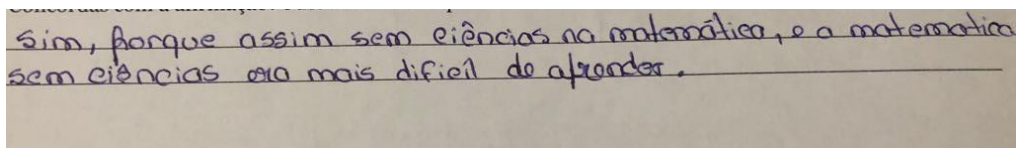 sim, porque assim sem ciências na matemática, e a matematica
sem ciências era mais dificil de aprender.